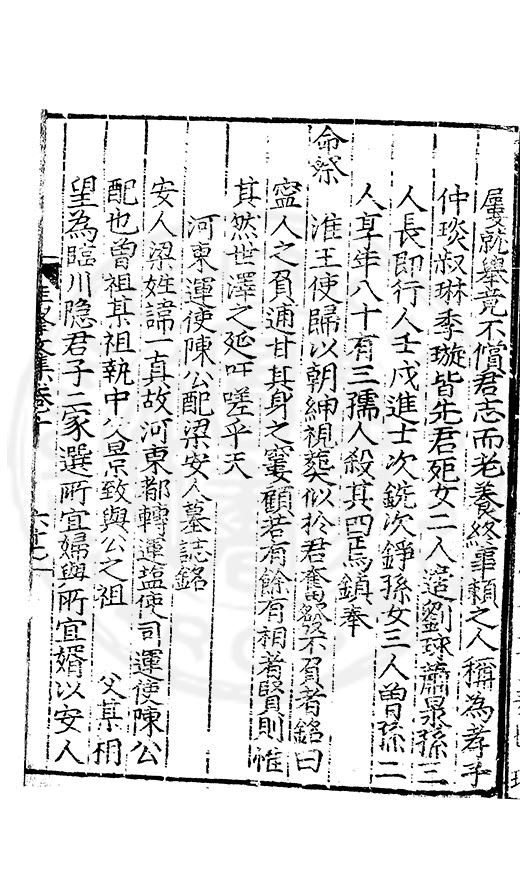 屢就舉竟不償君志而老養終事賴之人稱為孝子
仲琰叔琳季璇皆先君死女二人適劉球蕭泉孫三
人長即行人壬戌進士次銑次錚孫女三人曾孫二
人享年八十有三孺人殺其四焉鎮奉
命祭
淮王使歸以朝紳視葬似於君奮發不負者銘曰
寍人之負通甘其身之窶顧若有餘有相者賢則惟
其然世澤之延吁嗟乎天
河東運使陳公配梁安人墓誌銘
安人梁姓諱一真故河東都轉運塩使司運使陳公
配也曾祖某祖執中父景致與公之祖 父某相
望為臨川隐君子二家選所宜婦與所宜婿以安人